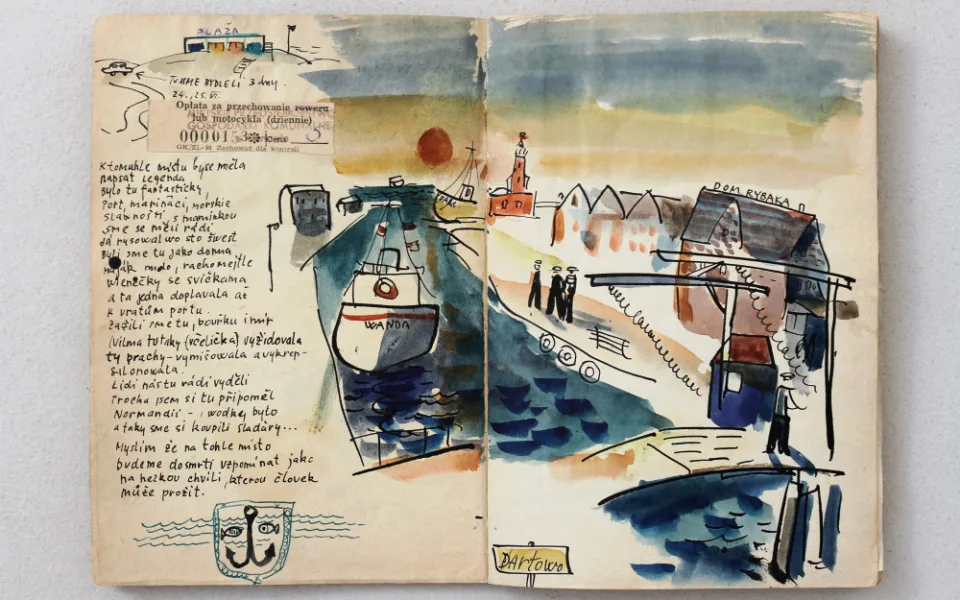 PLAŽA
TU SME BYDLELI 3 dny.
24., 25. VI.
Opłata za przechowanie roweru
lub motocykla (dziennie)
GOSPODARKI KOMUNALNE
Zachować dla kontroli
K tomuhle místu byse měla
napsat legenda
bylo tu fantasticky
Port, mariňáci, mořskie
slavnosti s maminkou
sme se měli rádi
já rysoval wo sto šwest
Byli sme tu jako doma
moře
věnečky se svíčkama
a ta jedna doplavala až
k vratům portu.
Zažili sme tu, bouřku i mír
(Vilma tutaky (včelička) vyžidovala
ty prachy - vymišowala a vykrep-
silonowala.
Lidi nás tu rádi vyděli
Trocha jsem si tu připomněl
Normandii - i wodkey bylo
a taky sme si koupili sladary...
Myslim že na tohle místo
budeme do smrti vzpomínat jako
na hezkou chvíli, kterou člowek
může prožít.
WANDA
DOM RYBAKA
DARŁOWO